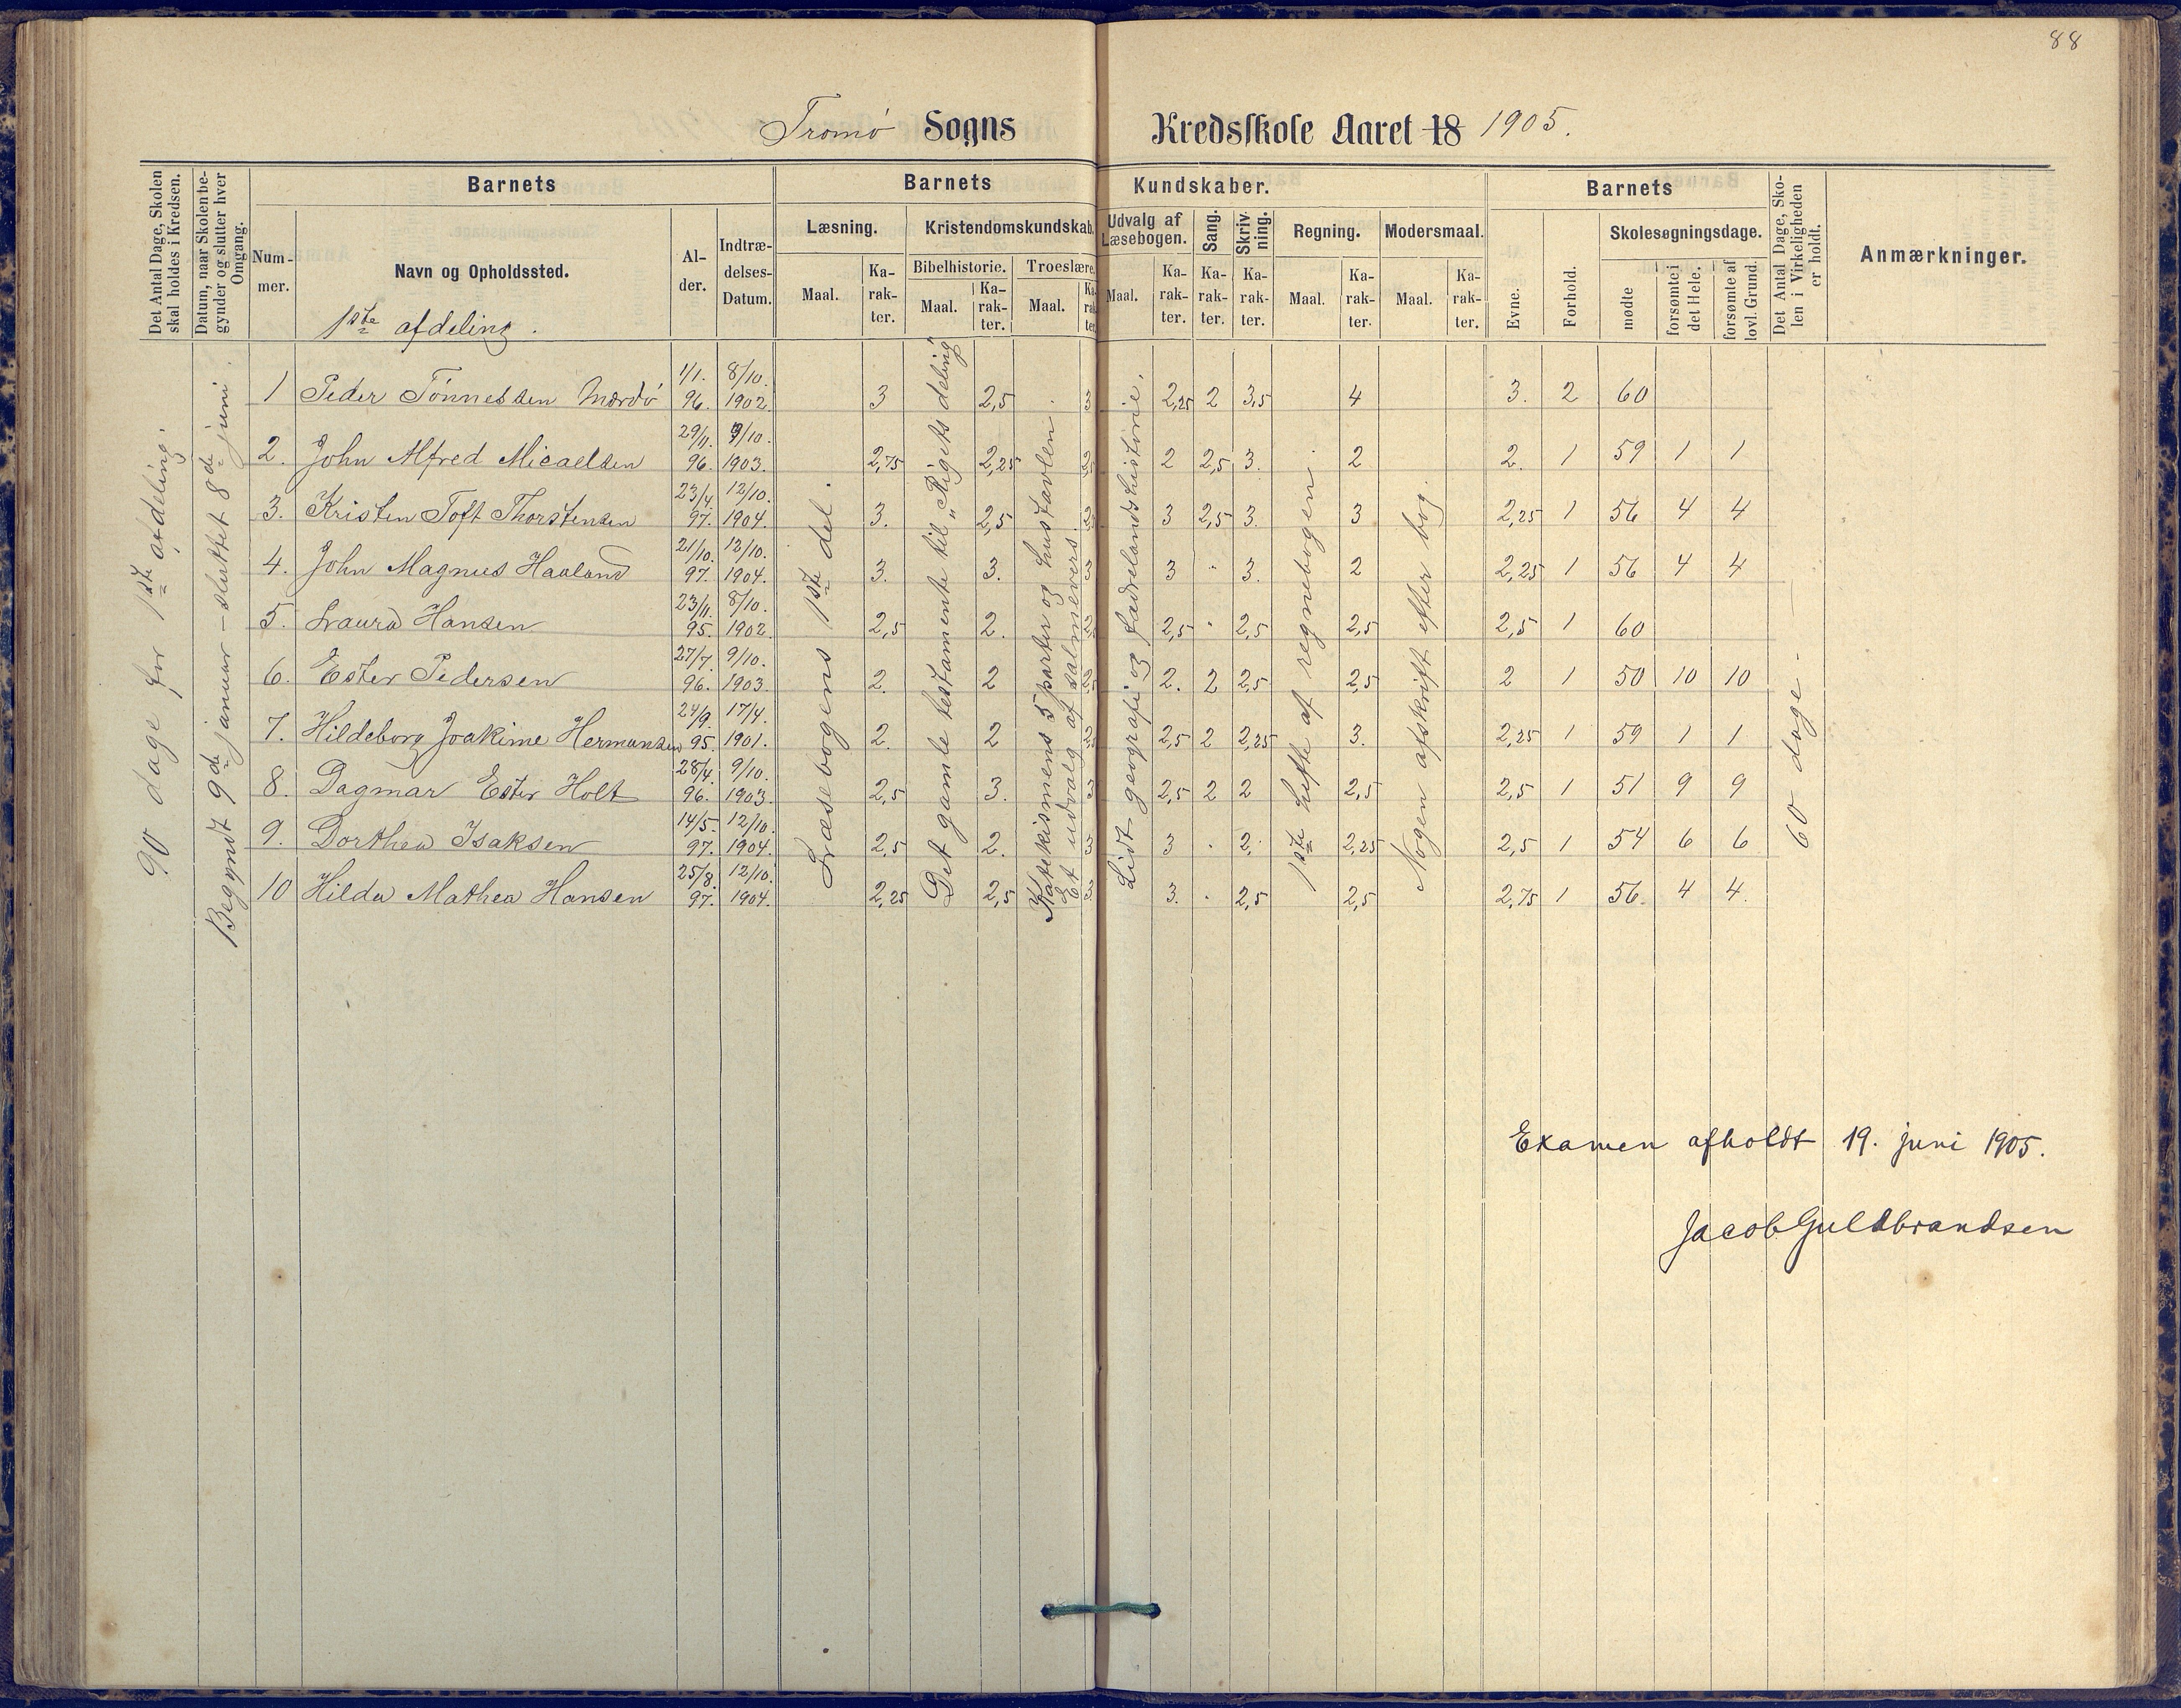 88
Tromø Sogns Kredsskole Aaret 18 1905.
Det Antal Dage, Skolen skal holdes i Kredsen.
Datum, naar Skolen begynder og slutter hver Omgang.
Barnets
Nummer.
Navn og Opholdssted.
1ste afdeling.
Alder.
Indtrædelses-Datum.
Barnets Kundskaber.
Læsning. Maal. Karakter.
Kristendomskundskab.
Bibelhistorie. Maal. Karakter.
Troeslære. Maal. Karakter.
Udvalg af Læsebogen. Maal. Karakter.
Sang. Karakter.
Skrivning. Karakter.
Regning. Maal. Karakter.
Modersmaal. Maal. Karakter.
Barnets
Evne.
Forhold.
Skolesøgningsdage.
mødte
forsømte i det Hele.
forsømte af lovl. Grund.
Det Antal Dage, Skolen i Virkeligheden er holdt.
Anmærkninger.
90 dage for 1ste afdeling.
Begyndt 9de januar – sluttet 8de juni.
Læsebogens 1ste del.
Det gamle testamente til „Rigets deling"
Katekismens 5 parter og hustavlen.
Et udvalg af salmevers.
Lidt geografi og fædrelandshistorie.
1ste hefte af regnebogen.
Nogen afskrift efter bog.
60 dage.
1 Peder Tønnessen Mærdø 1/1. 96. 8/10. 1902. 3 2,5 3 2,25 2 3,5 4 3. 2 60
2. John Alfred Micaelsen 29/11. 96. 9/10. 1903. 2,75 2,25 2 2,5 3. 2 2. 1 59 1 1
3. Kristen Toft Thorstensen 23/4. 97. 12/10. 1904. 3. 2,5 3 2,5 3. 3 2,25 1 56 4 4
4. John Magnus Haaland 21/10. 97. 12/10. 1904. 3. 3. 3 3 · 3. 2 2,25 1 56 4 4
5. Laura Hansen 23/11. 95. 8/10. 1902. 2,5 2. 2,5 · 2,5 2,5 2,5 1 60
6. Ester Pedersen 27/7. 96. 9/10. 1903. 2. 2 2. 2 2,5 2,5 2 1 50 10 10
7. Hildeborg Joakime Hermansen 24/9. 95. 17/4. 1901. 2. 2 2,5 2 2,25 3. 2,25 1 59 1 1
8. Dagmar Ester Holt 28/4. 96. 9/10. 1903. 2,5 3. 3 2,5 2 2 2,5 2,5 1 51 9 9
9. Dorthea Isaksen 14/5. 97. 12/10. 1904. 2,5 2. 3 3 · 2. 2,25 2,5 1 54 6 6
10 Hilda Mathea Hansen 25/8. 97. 12/10. 1904. 2,25 2,5 3. · 2,5 2,5 2,75 1 56. 4 4.
Examen afholdt 19. juni 1905.
Jacob Guldbrandsen